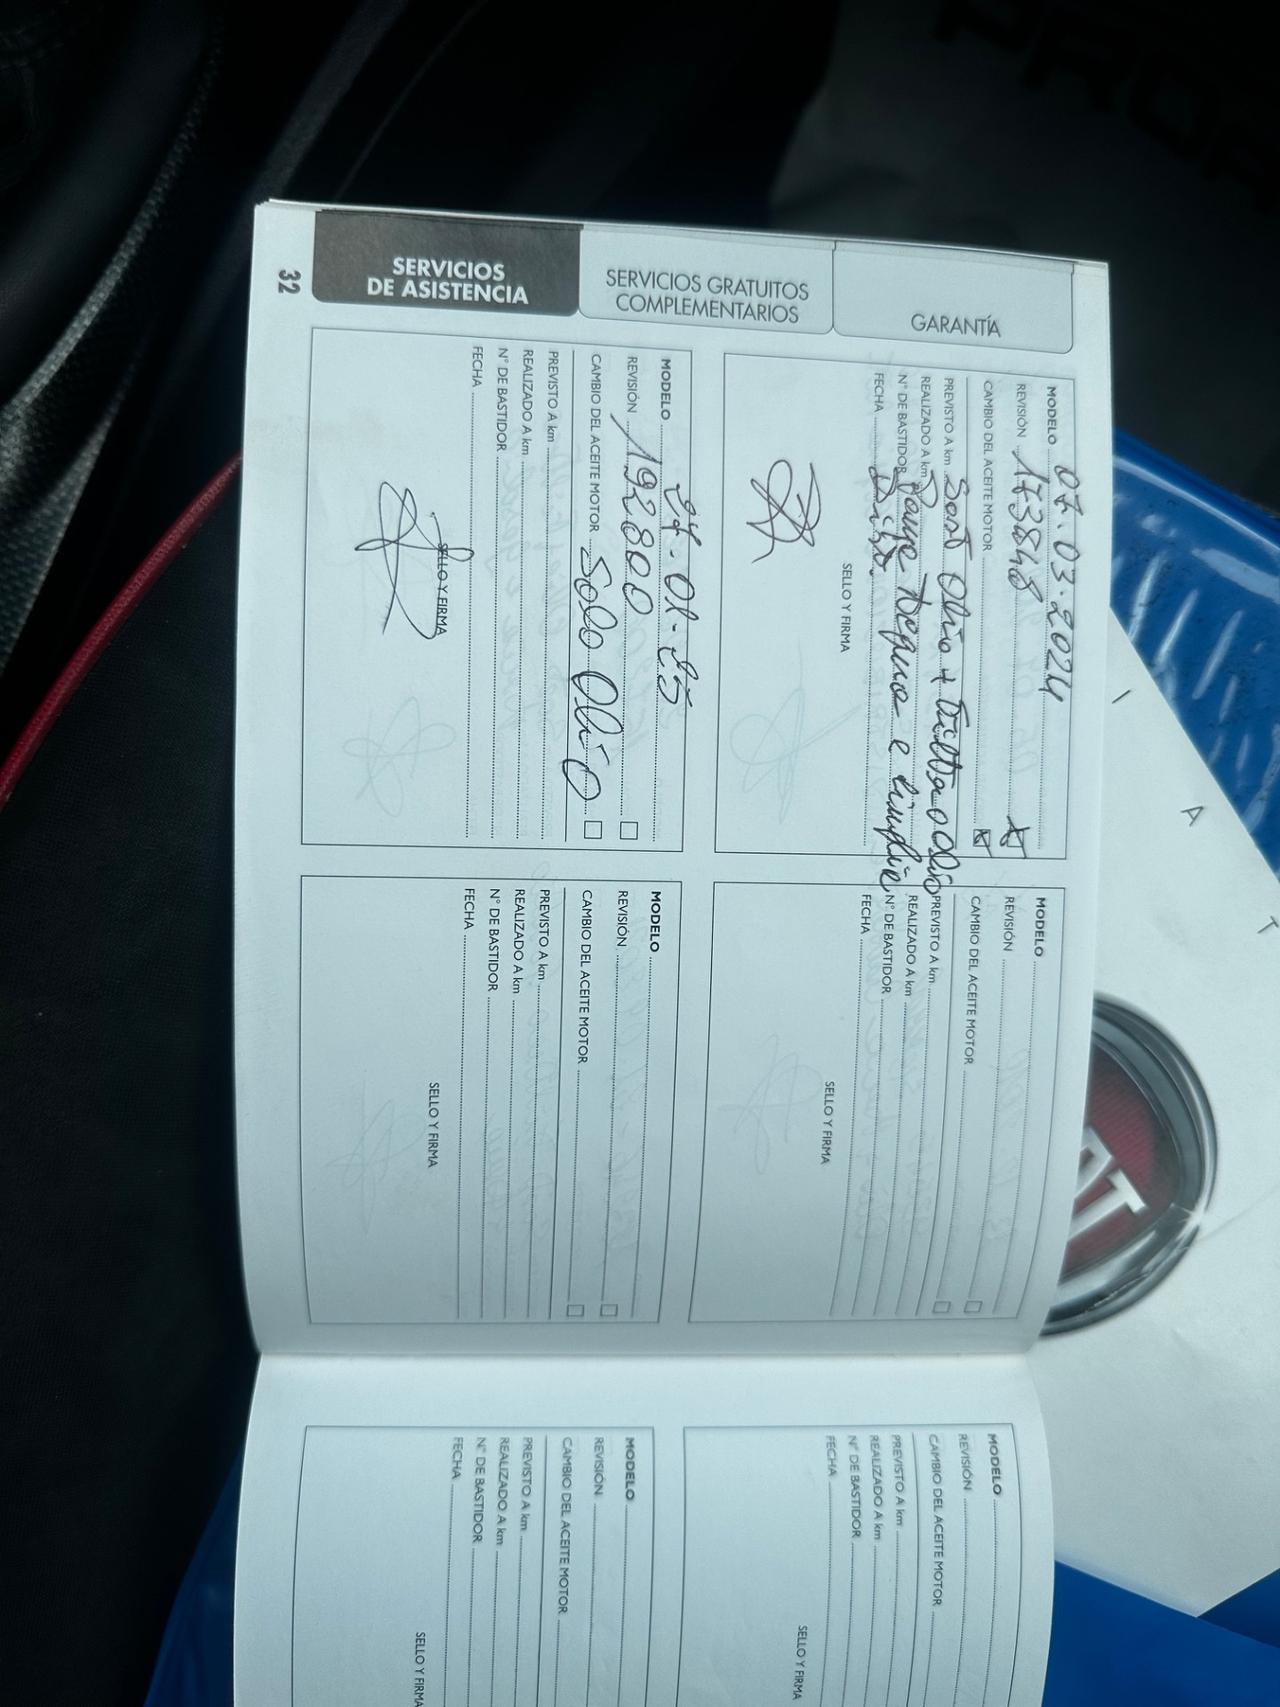 SERVICIOS
DE ASISTENCIA
SERVICIOS GRATUITOS
COMPLEMENTARIOS
GARANTÍA
32
MODELO 07.03.2024
REVISIÓN 173848
CAMBIO DEL ACEITE MOTOR
PREVISTO A km Sost Olio + Filtro olio
REALIZADO A km
N° DE BASTIDOR e
FECHA
SELLO Y FIRMA
MODELO 27-01-25
REVISIÓN 192800
CAMBIO DEL ACEITE MOTOR Solo Olio
PREVISTO A km
REALIZADO A km
N° DE BASTIDOR
FECHA
SELLO Y FIRMA
MODELO
REVISIÓN
CAMBIO DEL ACEITE MOTOR
PREVISTO A km
REALIZADO A km
N° DE BASTIDOR
FECHA
SELLO Y FIRMA
MODELO
REVISIÓN
CAMBIO DEL ACEITE MOTOR
PREVISTO A km
REALIZADO A km
N° DE BASTIDOR
FECHA
SELLO Y FIRMA
MODELO
REVISIÓN
CAMBIO DEL ACEITE MOTOR
PREVISTO A km
REALIZADO A km
N° DE BASTIDOR
FECHA
SELLO Y FIRMA
MODELO
REVISIÓN
CAMBIO DEL ACEITE MOTOR
PREVISTO A km
REALIZADO A km
N° DE BASTIDOR
FECHA
SELLO Y FIRMA
I A T